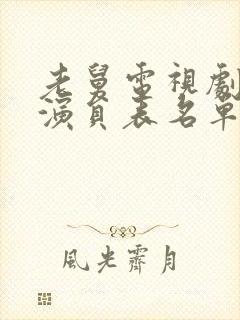 老舅電視劇
演員表名單
風光霽月